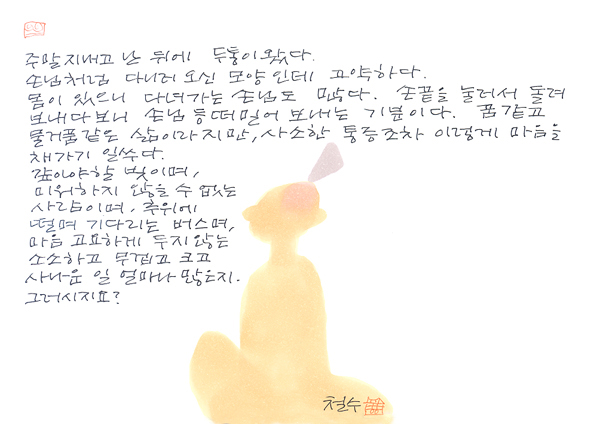 주말 지내고 난 뒤에 두통이 왔다.
손님처럼 다니러 오신 모양인데 고약하다.
몸이 있으니 다녀가는 손님도 많다. 손끝을 눌러서 돌려
보내다 보니 손님 등 떠밀어 보내는 기분이다. 꿈같고
물거품 같은 삶이라지만, 사소한 통증조차 이렇게 마음을
채가기 일쑤다.
갚아야할 빚이며,
미워하지 않을 수 없는
사람이며, 추위에
떨며 기다리는 버스며,
마음 고요하게 두지 않는
소소하고 무겁고 크고
사나운 일 얼마나 많은지.
그러시지요?
철수